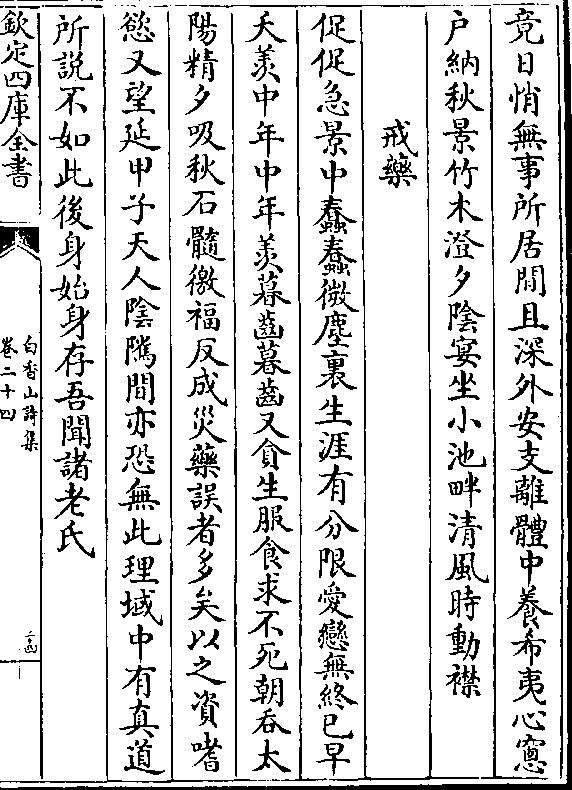 竟日悄無事所居閒且深外安支離體中養希夷心窻
户納秋景竹木澄夕陰宴坐小池畔清風時動襟
戒藥
促促急景中蠢蠢微塵裏生涯有分限愛戀無終已早
夭羨中年中年羨暮齒暮齒又貪生服食求不死朝吞太
陽精夕吸秋石髓徼福反成災藥誤者多矣以之資嗜
慾又望延甲子天人陰隲間亦恐無此理域中有真道
所説不如此後身始身存吾聞諸老氏
欽定四庫全書
白香山詩集
卷二十四